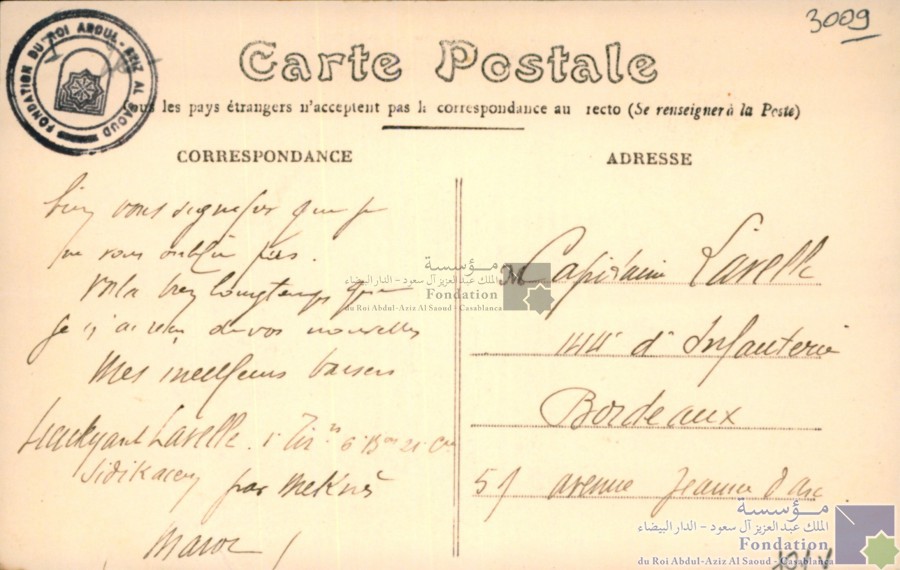 3009
FONDATION DU ROI ABDUL-AZIZ AL SAOUD
Carte Postale
Tous les pays étrangers n'acceptent pas la correspondance au recto (Se renseigner à la Poste)
CORRESPONDANCE
vous que je
ne vous oublie pas.
Voilà bien longtemps que
je n'ai reçu de vos nouvelles
Mes meilleurs baisers
Lieutenant Lavelle. 1er Tirrs 6e Bon 21e Cie
Sidi Kacem par Meknès
Maroc
ADRESSE
M Capitaine Lavelle
144e d'Infanterie
Bordeaux
51 avenue Jeanne d'Arc
مؤسسة
الملك عبد العزيز آل سعود - الدار البيضاء
Fondation
du Roi Abdul-Aziz Al Saoud - Casablanca
مؤسسة
الملك عبد العزيز آل سعود - الدار البيضاء
Fondation
du Roi Abdul-Aziz Al Saoud - Casablanca